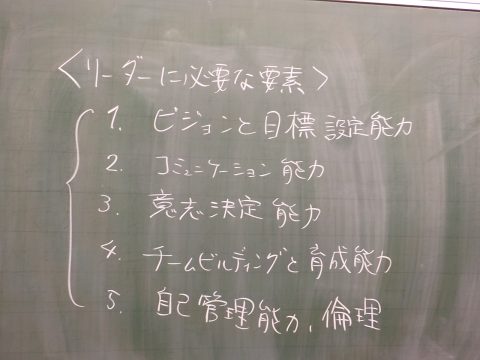 〈リーダーに必要な要素〉
1. ビジョンと目標設定能力
2. コミュニケーション能力
3. 意志決定能力
4. チームビルディングと育成能力
5. 自己管理能力、倫理